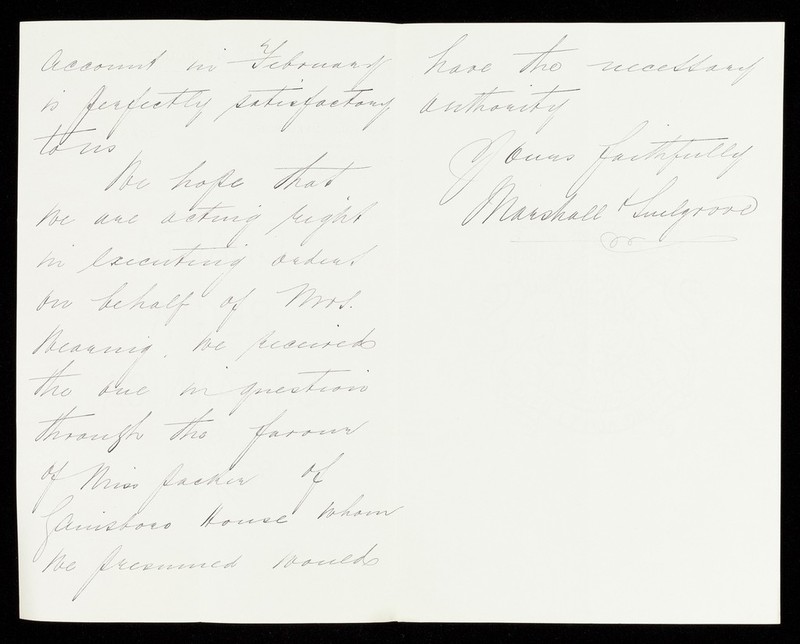 account in February
is perfectly satisfactory
to us
We hope that
we are acting right
in executing orders
on behalf of Mrs.
we received
the one in question
through the favour
of Miss Packer of
Gainsboro House whom
we presumed would
have the necessary
authority
Yours faithfully
Marshall & Snelgrove